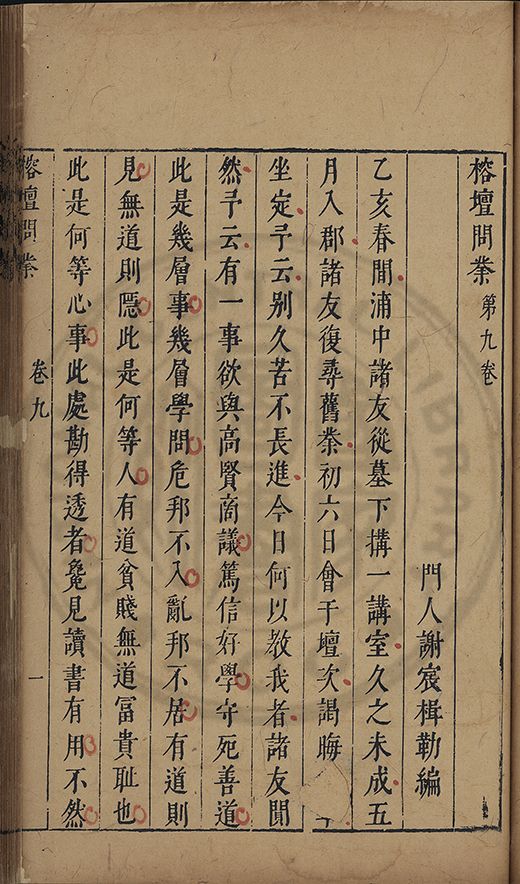 榕壇問業 第九卷
門人謝宸楫勒編
乙亥春閒浦中諸友從墓下搆一講室久之未成五
月入郡諸友復尋舊業初六日會于壇次謁晦
坐定予云别久苦不長進今日何以教我者諸友閒
然予云有一事欲與高賢商議篤信好學守死善道
此是幾層事幾層學問危邦不入亂邦不居有道則
見無道則隱此是何等人有道貧賤無道冨貴耻也
此是何等心事此處勘得透者毚見讀書有用不然
榕壇問業 卷九 一